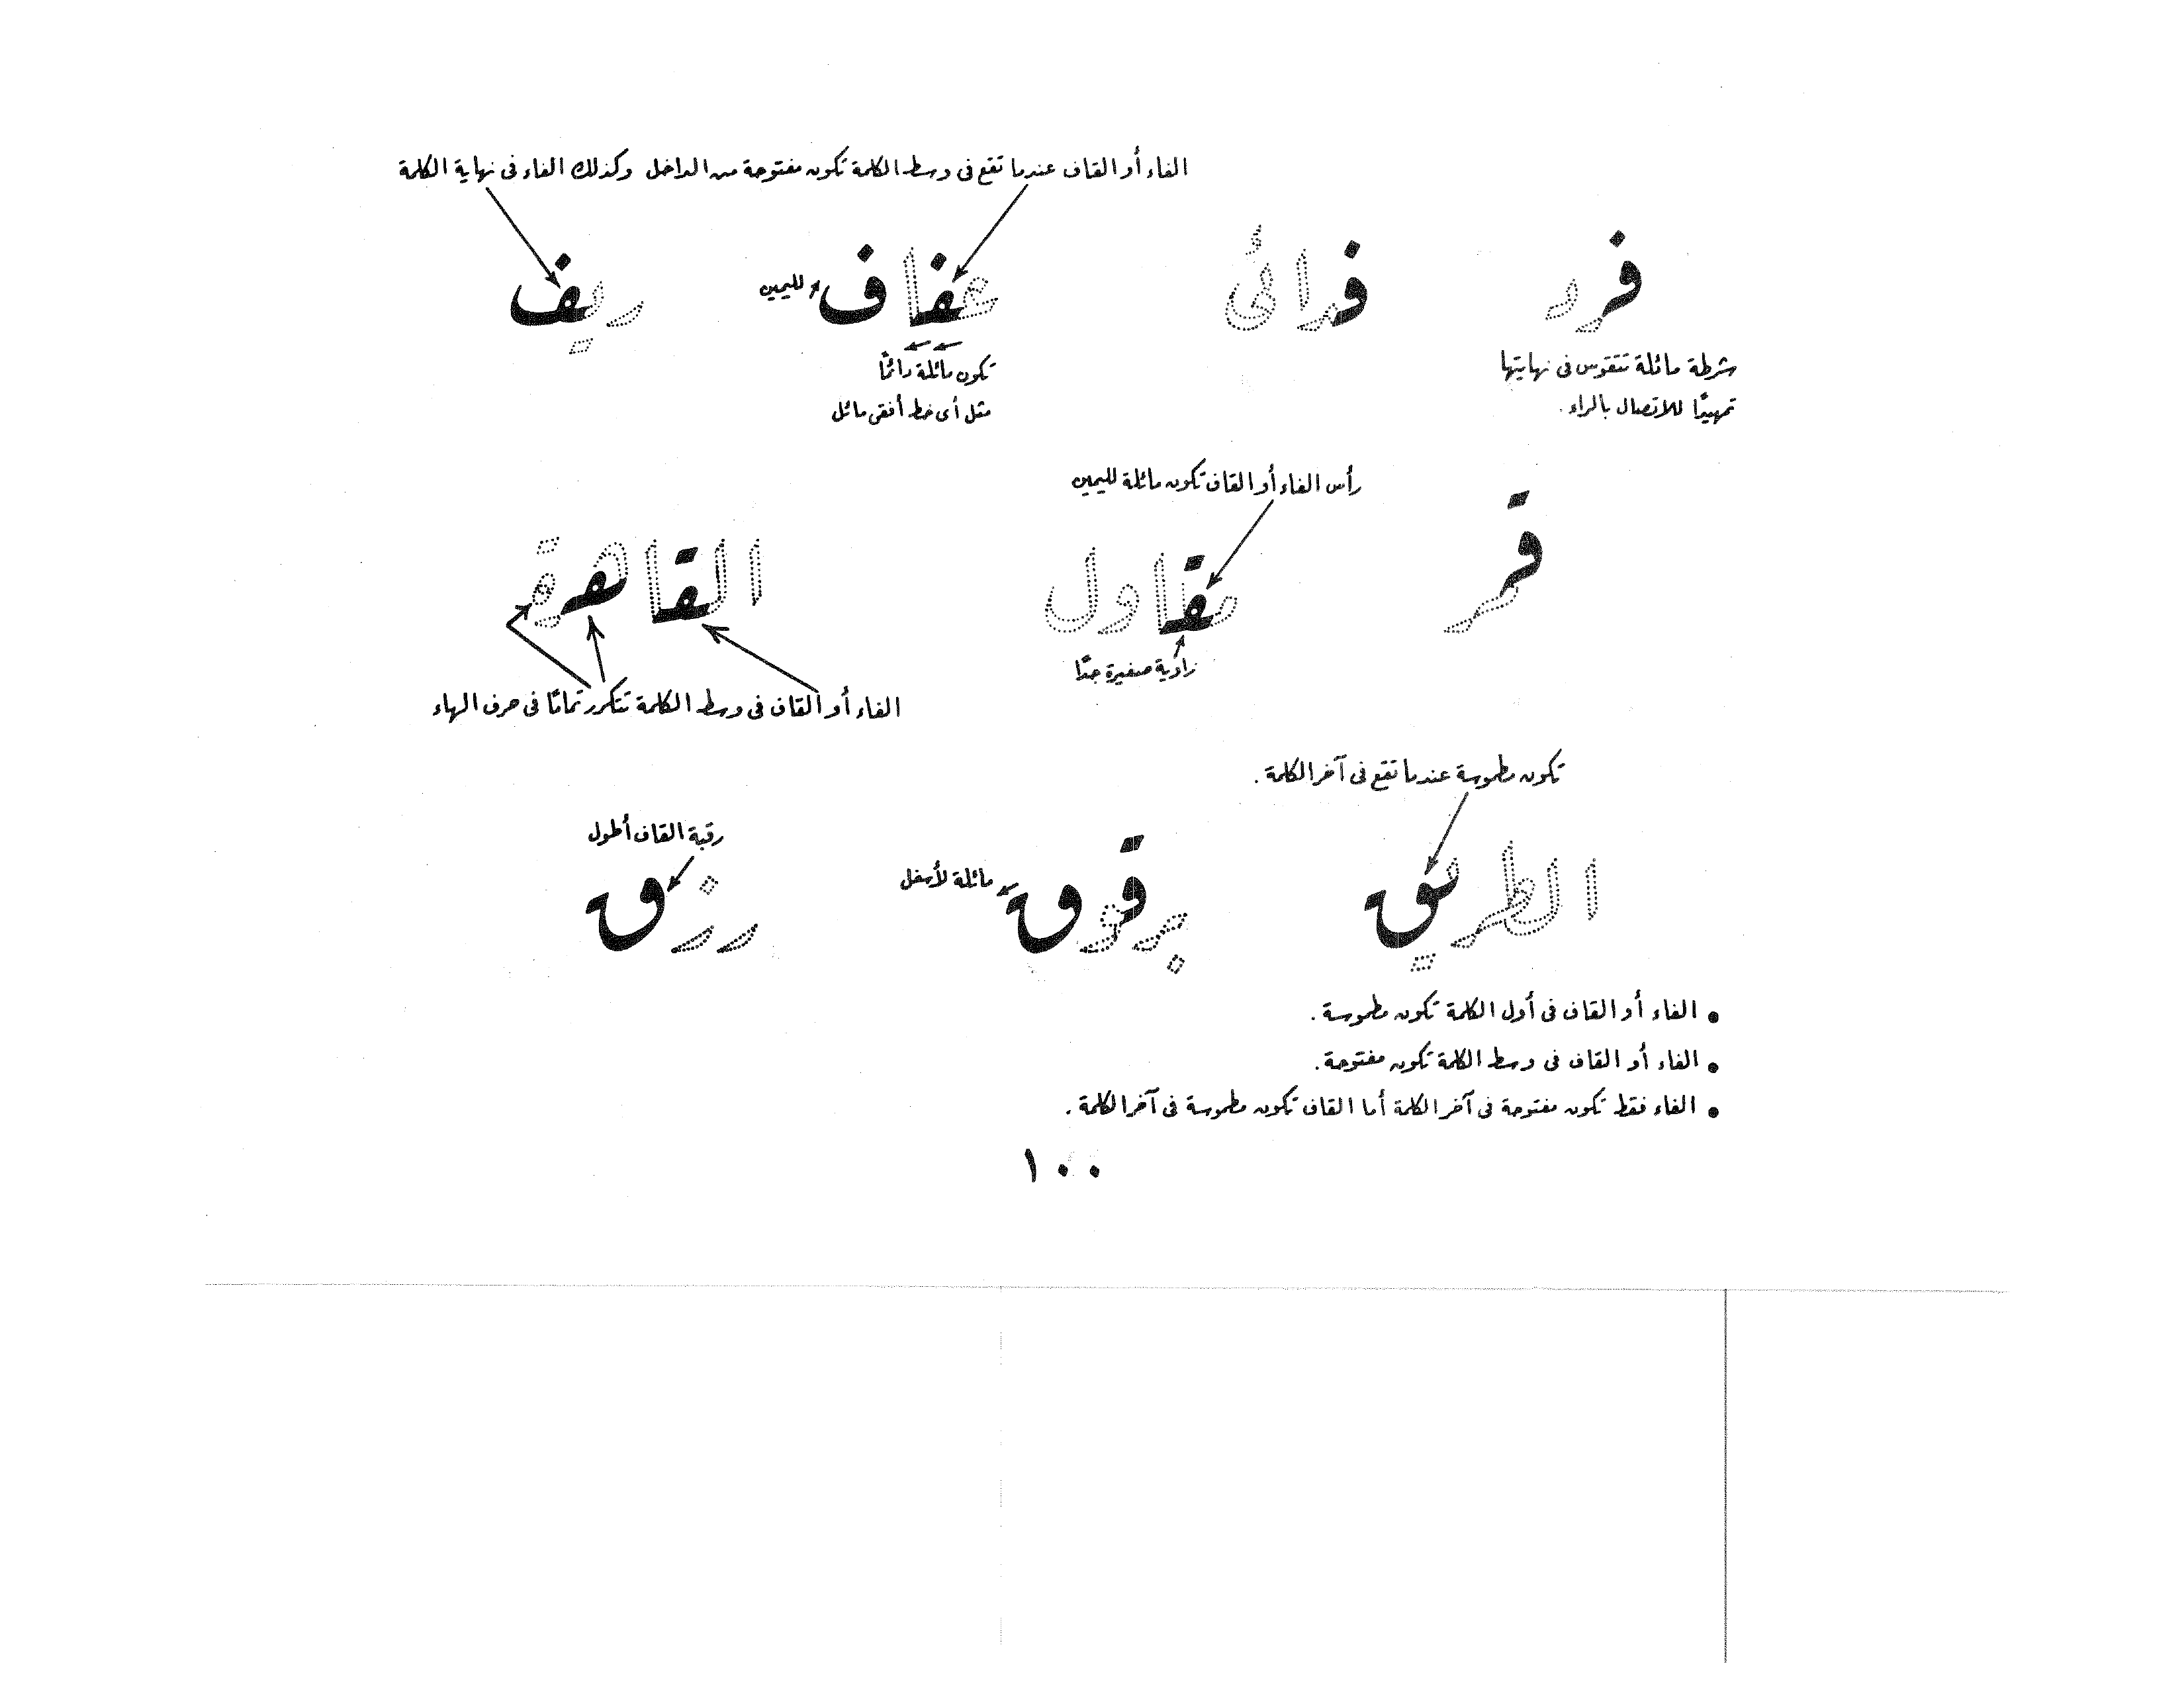 الفاء أو القاف عندما تقع فى وسط الكلمة تكون مفتوحة من الداخل وكذلك الفاء فى نهاية الكلمة
فرد فدائى عفاف ريف
لليمين
شرطة مائلة تتقوس فى نهايتها
تمهيدًا للاتصال بالراء.
تكون مائلة دائمًا
مثل أى خط أفقى مائل
رأس الفاء أو القاف تكون مائلة لليمين
مقاول القاهرة
زاوية صغيرة جدًا
الفاء أو القاف فى وسط الكلمة تتكرر تمامًا فى حرف الهاء
تكون مطموسة عندما تقع فى آخر الكلمة.
رقبة القاف أطول
مائلة لأسفل
الطريق برقوق رزق
• الفاء أو القاف فى أول الكلمة تكون مطموسة.
• الفاء أو القاف فى وسط الكلمة تكون مفتوحة.
• الفاء فقط تكون مفتوحة فى آخر الكلمة أما القاف تكون مطموسة فى آخر الكلمة.
١٠٠